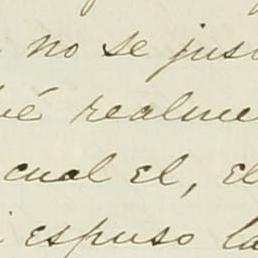 no se jus
ué realme
cual el, el
espuso la